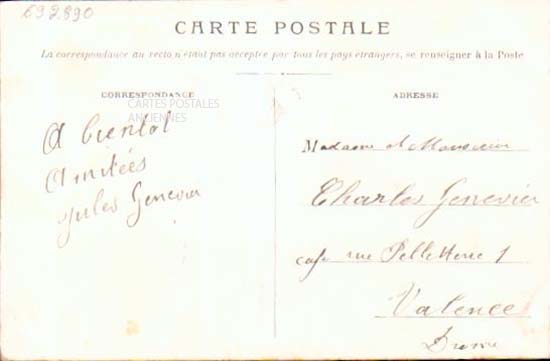 692890
CARTE POSTALE
La correspondance au recto n'étant pas acceptée par tous les pays étrangers, se renseigner à la Poste
CORRESPONDANCE
CARTES POSTALES
ANCIENNES
A bientot
Amitées
Jules Genevier
ADRESSE
Madame et Monsieur
Charles Genevier
cafe rue Pelleterie 1
Valence
Drome